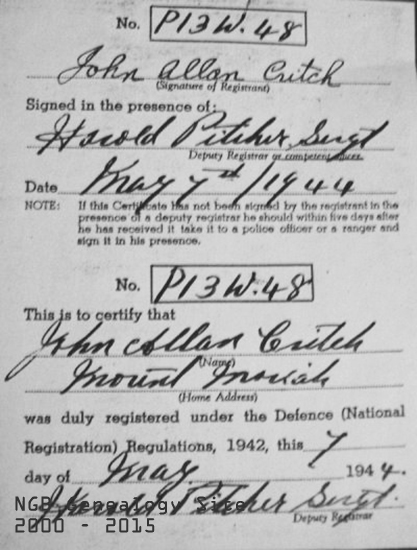 No. P13W.48
John Allan Critch
(Signature of Registrant)
Signed in the presence of:
Harold Pitcher Sergt
Deputy Registrar or competent officer.
Date May 7th/1944
NOTE: If this Certificate has not been signed by the registrant in the
presence of a deputy registrar he should within five days after
he has received it take it to a police officer or a ranger and
sign it in his presence.
No. P13W.48
This is to certify that
John Allan Critch
(Name)
Mount Moriah
(Home Address)
was duly registered under the Defence (National
Registration) Regulations, 1942, this 7
day of May. 1944.
Harold Pitcher Sergt.
Deputy Registrar
NGB Genealogy Site
2000 - 2015